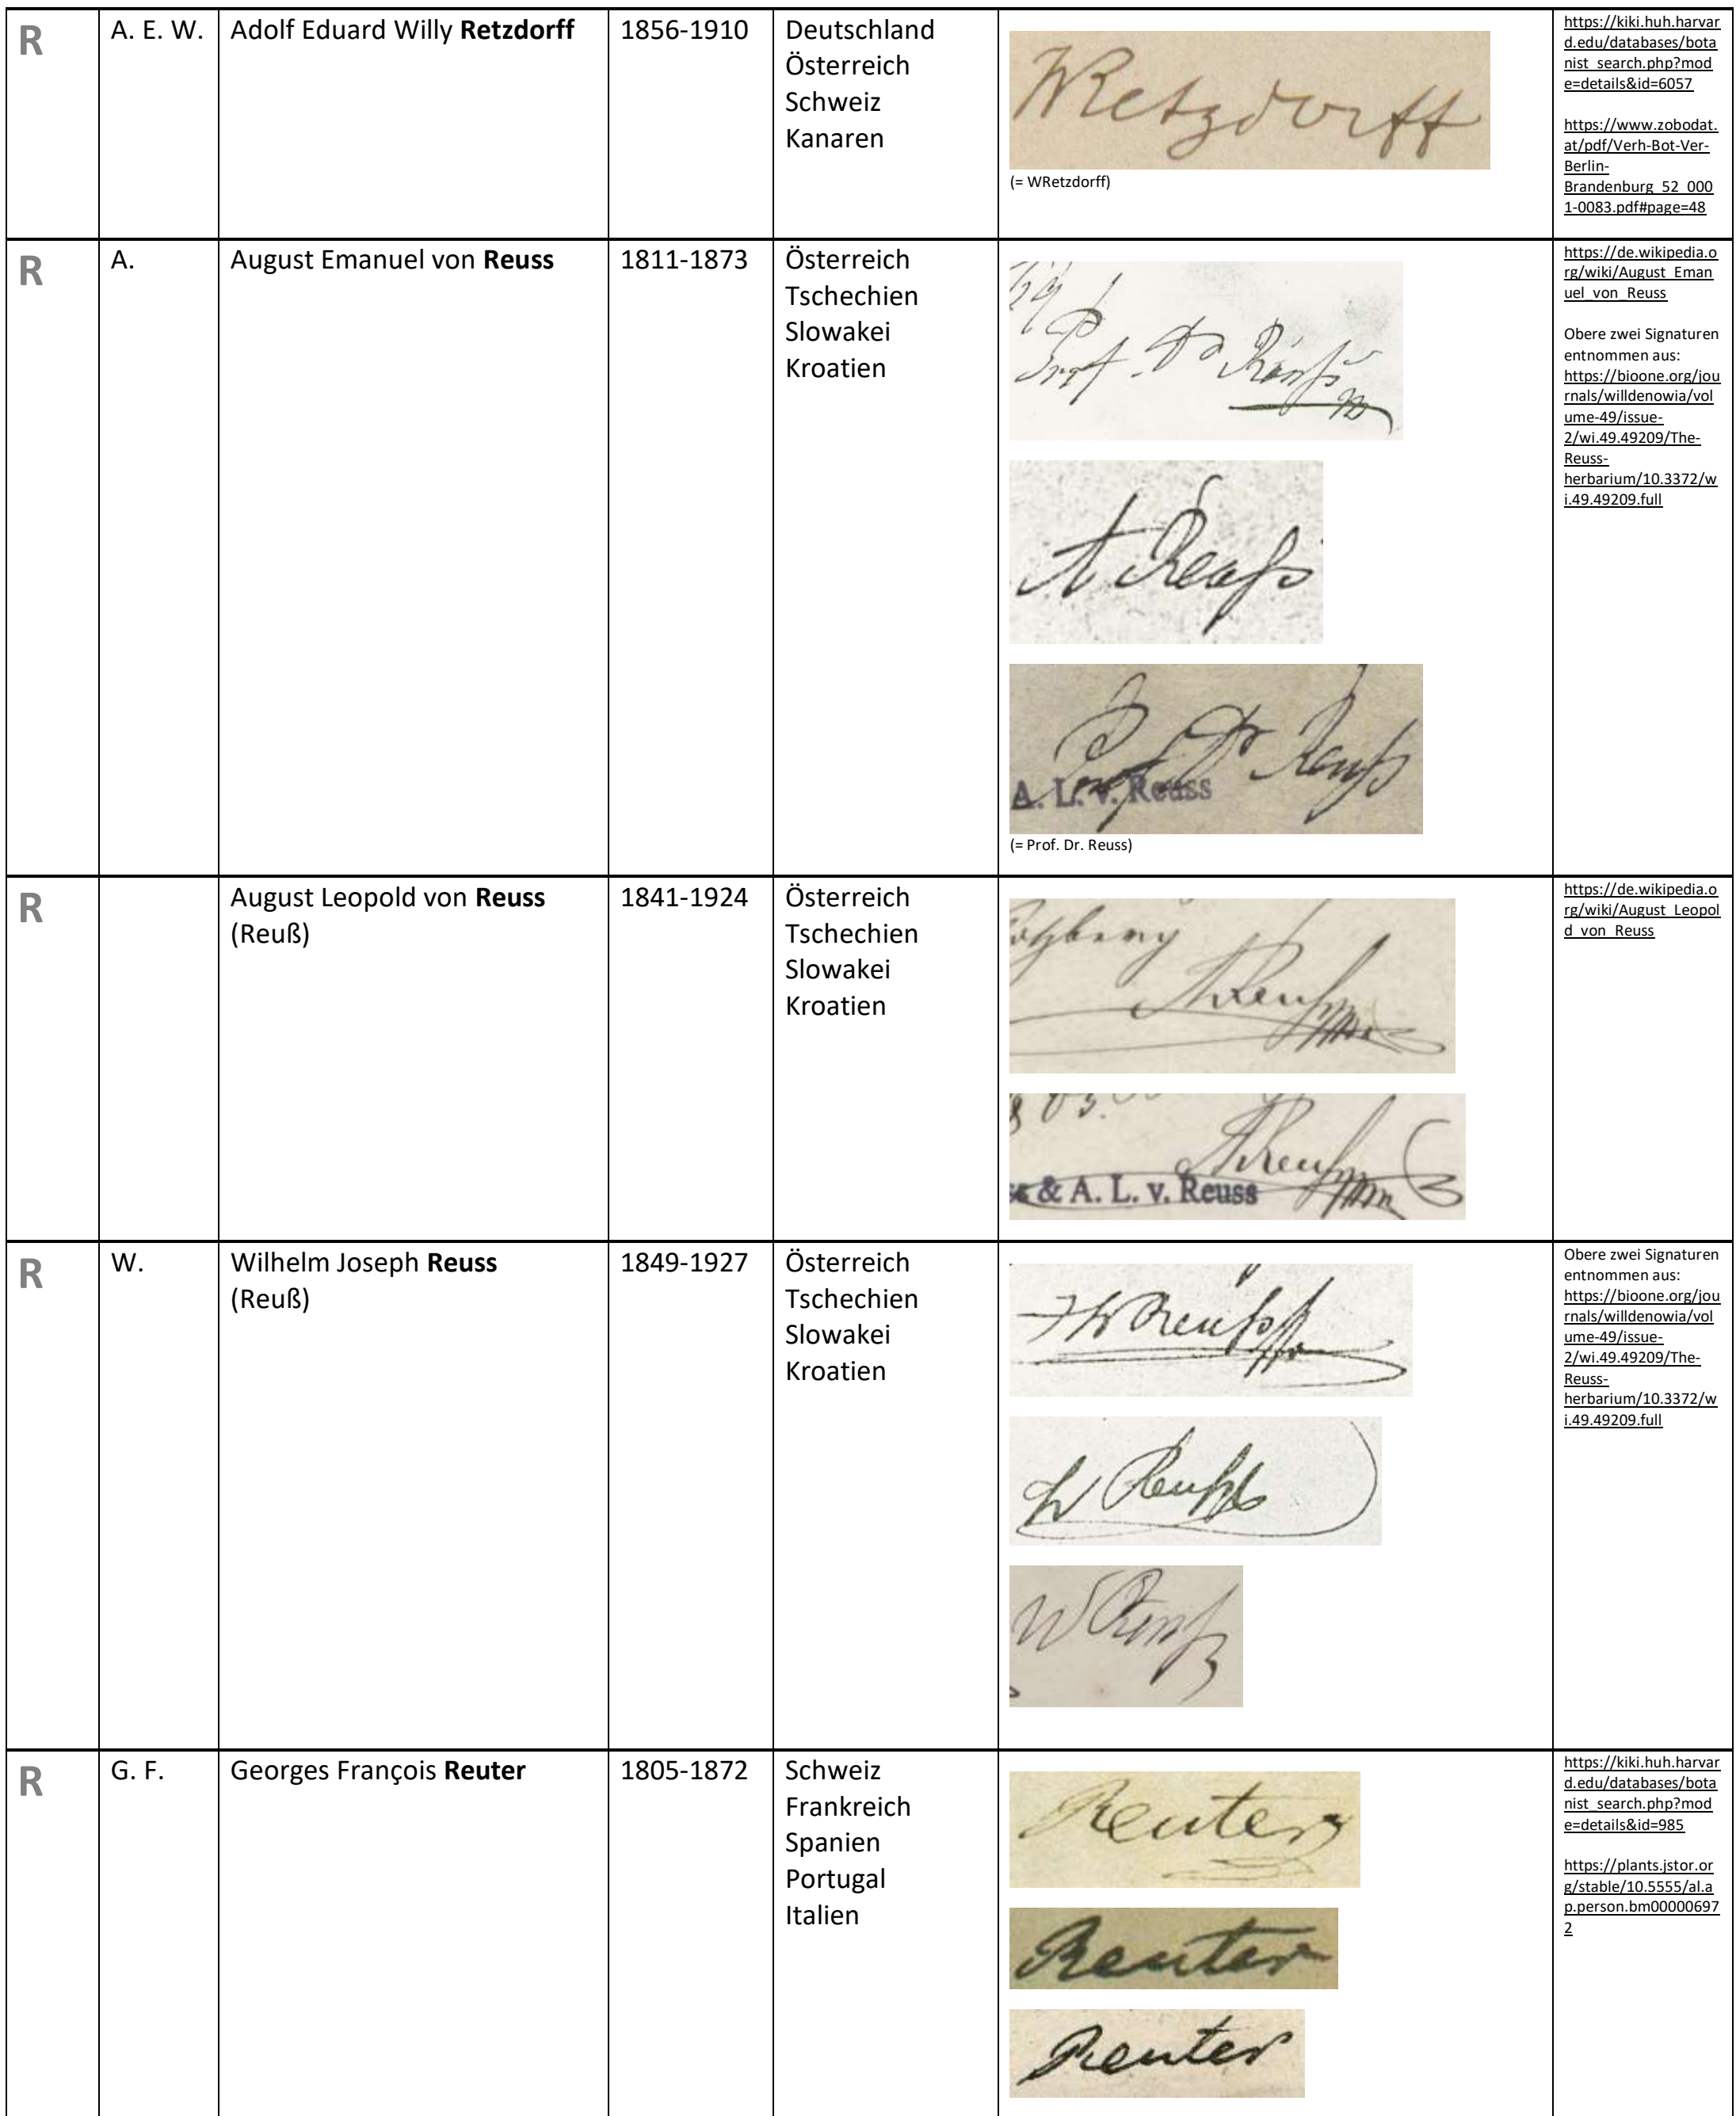 R
A. E. W.
Adolf Eduard Willy Retzdorff
1856-1910
Deutschland
Österreich
Schweiz
Kanaren
WRetzdorff
(= WRetzdorff)
https://kiki.huh.harvar
d.edu/databases/bota
nist_search.php?mod
e=details&id=6057
https://www.zobodat.
at/pdf/Verh-Bot-Ver-
Berlin-
Brandenburg_52_000
1-0083.pdf#page=48
R
A.
August Emanuel von Reuss
1811-1873
Österreich
Tschechien
Slowakei
Kroatien
Prof. Dr Reuß
A Reuß
Prof Dr Reuß
A. L. v. Reuss
(= Prof. Dr. Reuss)
https://de.wikipedia.o
rg/wiki/August_Eman
uel_von_Reuss
Obere zwei Signaturen
entnommen aus:
https://bioone.org/jou
rnals/willdenowia/vol
ume-49/issue-
2/wi.49.49209/The-
Reuss-
herbarium/10.3372/w
i.49.49209.full
R
August Leopold von Reuss
(Reuß)
1841-1924
Österreich
Tschechien
Slowakei
Kroatien
AReuß
AReuß
& A. L. v. Reuss
https://de.wikipedia.o
rg/wiki/August_Leopol
d_von_Reuss
R
W.
Wilhelm Joseph Reuss
(Reuß)
1849-1927
Österreich
Tschechien
Slowakei
Kroatien
Reuß
W Reuß
W Reuß
Obere zwei Signaturen
entnommen aus:
https://bioone.org/jou
rnals/willdenowia/vol
ume-49/issue-
2/wi.49.49209/The-
Reuss-
herbarium/10.3372/w
i.49.49209.full
R
G. F.
Georges François Reuter
1805-1872
Schweiz
Frankreich
Spanien
Portugal
Italien
Reuter
Reuter
Reuter
https://kiki.huh.harvar
d.edu/databases/bota
nist_search.php?mod
e=details&id=985
https://plants.jstor.or
g/stable/10.5555/al.a
p.person.bm00000697
2